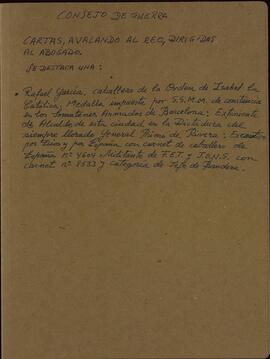 CONSEJO DE GUERRA
CARTAS, AVALANDO AL REO, DIRIGIDAS
AL ABOGADO.
SE DESTACA UNA:
Rafael García, caballero de la Orden de Isabel la
Católica, Medalla impuesta por S.S.M. de constancia
en los Somatenes Armados de Barcelona; Exteniente
de Alcalde de esta ciudad en la Dictadura del
siempre llorado General Primo de Rivera; Excautivo
por Dios y por España con carnet de caballero de
España nº 4604 Militante de F.E.T. y J.O.N.S. con
carnet nº 8533 y categoría de Jefe de Bandera.